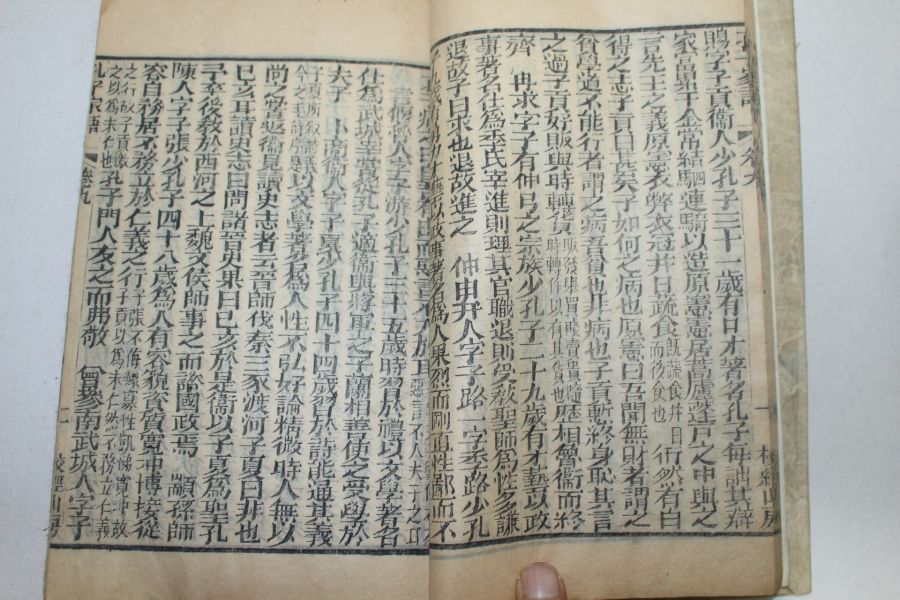 孔子家語 卷九 一 校經山房
賜字子貢衞人少孔子三十一歲有口才著名孔子每詘其辯
家富累千金常結駟連騎以造原憲憲居蒿廬蓬戶之中與之
言先王之義原憲衣弊衣冠并日蔬食既蔬食并日而後食也衎然有自
得之志子貢曰甚矣子如何之病也原憲曰吾聞無財者謂之
貧學道不能行者謂之病吾貧也非病也子貢慙終身恥其言
之過子貢好販與時轉貨販發與買賤賣貴隨時轉作以有其貨歷相魯衞而終
齊 冉求字子有仲弓之宗族少孔子二十九歲有才藝以政
事著名仕為季氏宰進則理其官職退則受教聖師為性多謙
退故子曰求也退故進之 仲由卞人字子路一字季路少孔
子九歲有勇力才藝以政事著名為人果烈而剛直性鄙而不
言偃魯人字子游少孔子三十五歲時習於禮以文學著名
仕為武城宰嘗從孔子適衞與將軍之子蘭相善使之受學於
夫子 卜商衞人字子夏少孔子四十四歲習於詩能通其義
子夏所叙詩義今之毛詩序是以文學著名為人性不弘好論精微時人無以
尚之嘗返衞見讀史志者云晉師伐秦三豕渡河子夏曰非也
己亥耳讀史志曰問諸晉史果曰己亥於是衞以子夏為聖孔
子卒後教於西河之上魏文侯師事之而諮國政焉 顓孫師
陳人字子張少孔子四十八歲為人有容貌資質寬沖博接從
容自務居不務立於仁義之行子張不侮鰥寡性凱悌寬沖故子貢以為未仁然不務立仁義
之行故子貢激之以為未仁也孔子門人友之而弗敬 曾參南武城人字子
孔子家語 卷九 二 校經山房